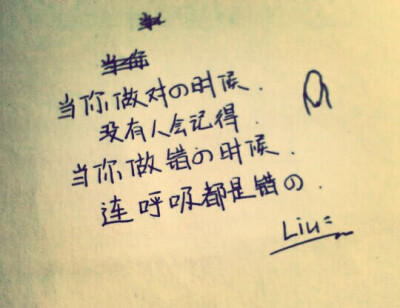 当你做对の时候.
没有人会记得.
当你做错の时候.
连呼吸都是错の.
Liu=